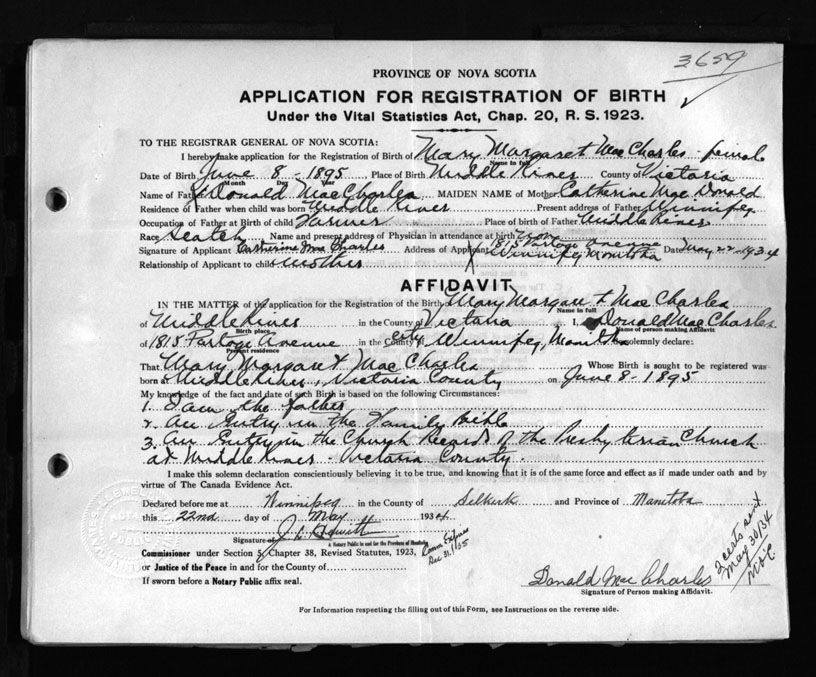 3659
PROVINCE OF NOVA SCOTIA
APPLICATION FOR REGISTRATION OF BIRTH
Under the Vital Statistics Act, Chap. 20, R. S. 1923.
TO THE REGISTRAR GENERAL OF NOVA SCOTIA:
I hereby make application for the Registration of Birth of Mary Margaret Mac Charles - female
Name in full
Date of Birth June 8 - 1895 Place of Birth Middle River County of Victoria
Month Day Year
Name of Father Donald MacCharles MAIDEN NAME of Mother Catherine MacDonald
Residence of Father when child was born Middle River Present address of Father Winnipeg
Occupation of Father at Birth of Child Farmer Place of Birth of Father Middle River
Race Scotch Name and present address of Physician in attendance at birth
Signature of Applicant Catherine Mac Charles Address of Applicant 1815 Portage Avenue Winnipeg Manitoba Date May 22 - 1934
Relationship of Applicant to child Mother
AFFIDAVIT
IN THE MATTER of the application for the Registration of the Birth Mary Margaret Mac Charles
Name in full
of Middle River in the County of Victoria I, Donald MacCharles
Birth place Name of person making Affidavit
of 1815 Portage Avenue City Winnipeg, Manitoba solemnly declare:
Present residence
That Mary Margaret MacCharles Whose Birth is sought to be registered was
born at Middle River, Victoria County on June 8 - 1895
My knowledge of the fact and date of such Birth is based on the following Circumstances:
1. I am the father
2. An Entry in the Family Bible
3. An Entry in the Church Records of the Presbyterian Church
at Middle River - Victoria County.
I make this solemn declaration conscientiously believing it to be true, and knowing that it is of the same force and effect as if made under oath and by
virtue of The Canada Evidence Act.
Declared before me at Winnipeg in the County of Selkirk and Province of Manitoba
this 22nd day of May 1934
Signature of
A Notary Public in and for the Province of Manitoba
Comm Expires
Dec 31/35
Commissioner under Section 3, Chapter 38, Revised Statutes, 1923,
or Justice of the Peace in and for the County of
If sworn before a Notary Public affix seal.
Donald MacCharles
Signature of Person making Affidavit.
2 certs sent
May 30/34
For Information respecting the filling out of this Form, see Instructions on the reverse side.